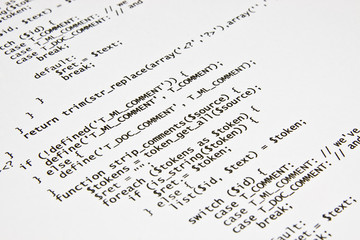 switch ($id) {
case T_ML_COMMENT: // we've
case T_DOC_COMMENT: // and
break;
default:
$ret .= $text;
break;
}
}
}
return trim(str_replace(array('<?', '?>'), array('
}
<?
if (!defined('T_ML_COMMENT')) {
define('T_ML_COMMENT', T_COMMENT);
} else {
define('T_DOC_COMMENT', T_ML_COMMENT);
}
function strip_comments($source) {
$tokens = token_get_all($source);
$ret = "";
foreach ($tokens as $token) {
if (is_string($token)) {
$ret .= $token;
} else {
list($id, $text) = $token;
switch ($id) {
case T_COMMENT:
case T_ML_COMMENT: // we've
case T_DOC_COMMENT: // and
break;
default:
$ret .= $text;
break;